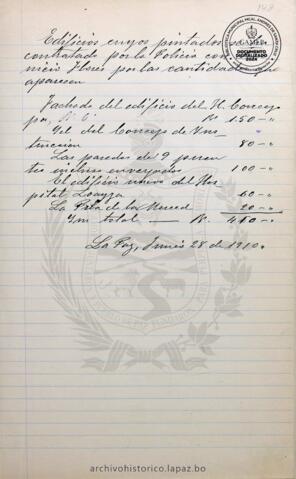 148
Edificios cuyos pintados
contratado por la Policía con
por las cantidades
aparecen
Fachada del edificio del H. Concejo
Bs 150 -
Id del Consejo de Ins-
trucción 80 -
Las paredes de 9 puen-
tes 100 -
El edificio nuevo del Hos-
pital Loayza 60 -
La Pila de la Merced 20 -
total Bs. 410 -
La Paz, Junio 28 de 1910.
DOCUMENTO
DIGITALIZADO
2024
archivohistorico.lapaz.bo